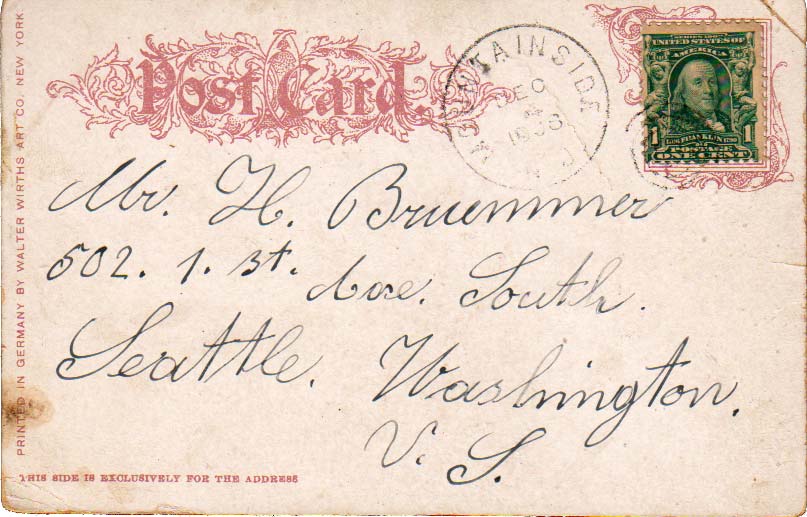 Post Card
MOUNTAINSIDE
DEC
4
N.J.
SERIES 1902
UNITED STATES OF
AMERICA
1 1
POSTAGE
ONE CENT
Mr. H. Bruemmer
502. 1. St. Ave. South.
Seattle. Washington.
U. S.
PRINTED IN GERMANY BY WALTER WIRTHS ART CO. NEW YORK.
THIS SIDE IS EXCLUSIVELY FOR THE ADDRESS